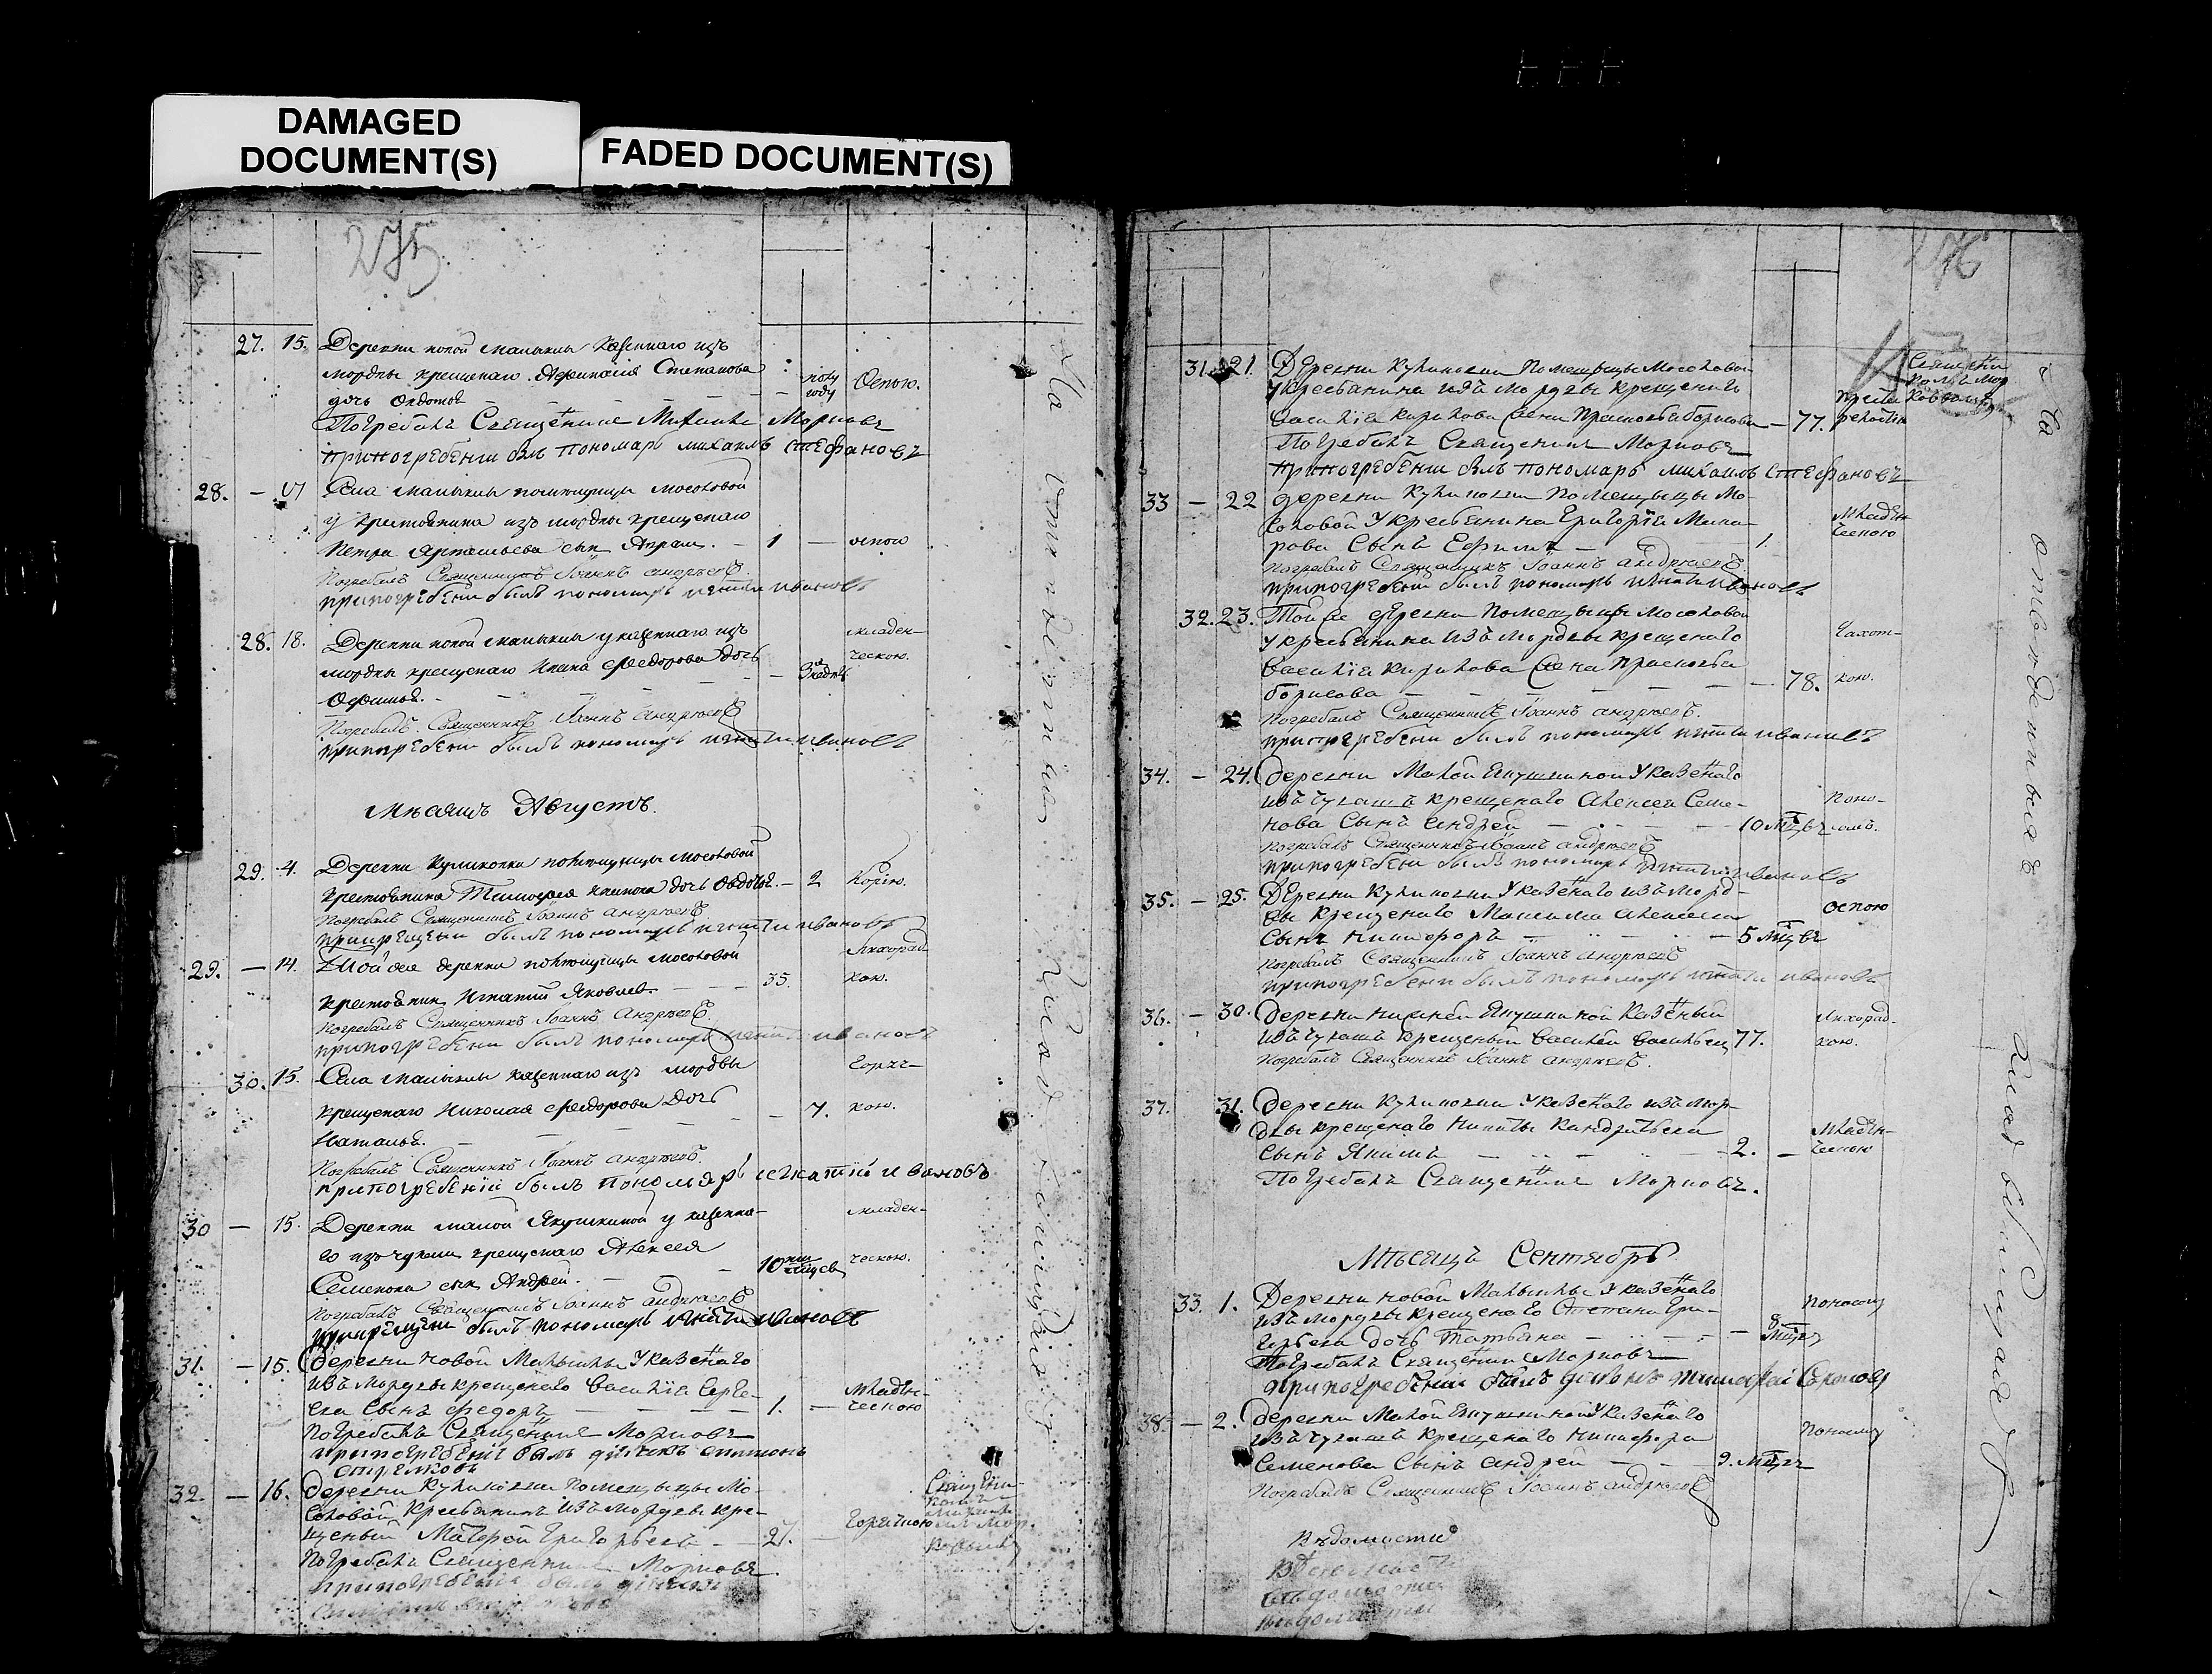 DAMAGED
DOCUMENT(S)
FADED DOCUMENT(S)
275
27. 15. Деревни новой малыклы казеннаго изъ
мордвы крещенаго Афанасія Степанова
дочь Овдотья — полугоду Оспою.
Погребалъ Священникъ Михаилъ Морновъ
при погребении былъ пономарь михаилъ стефановъ
28. — 17 Села малыклы помещицы мосоловой
у крестьянина изъ мордвы крещенаго
Петра сын Абрам. — 1 — оспою
Погребалъ Священникъ Іоаннъ андреевъ
при погребени былъ пономарь игнати ивановъ
28. 18. Деревни новой малыклы у казеннаго изъ младен-
мордвы крещенаго Ивана Федорова дочь — 3 недѣль ческою.
Офимья. —
Погребалъ Священникъ Іоаннъ андреевъ
при погребени былъ пономарь игнати ивановъ
Мѣсяцъ Августъ.
29. 4. Деревни Куликовки помещицы мосоловой
крестьянина Тимофея дочь Овдотья. — 2 Корью.
Погребалъ Священникъ Іоаннъ андреевъ
былъ пономарь игнати ивановъ
29. — 14. Той же деревни помещицы мосоловой Лихорад-
крестьянин Игнатий Яковлев. — 35. кою.
Погребалъ Священникъ Іоаннъ Андреевъ.
при погребени былъ пономарь игнати ивановъ
30. 15. Села малыклы казеннаго изъ мордвы Горяч-
крещенаго Николая Федорова Дочь — 7. кою.
Наталья. —
Погребалъ Священникъ Іоаннъ андреевъ.
при погребеніи былъ пономарь игнатий ивановъ
30 — 15. Деревни малой Якушкиной у казенна- младен-
го изъ чуваш крещенаго Алексея 10ти мцсевъ ческою.
Семенова сын Андрей. —
Погребалъ Священникъ Іоаннъ андреевъ
былъ пономарь игнати ивановъ
31. — 15. Деревни новой Малыклы Указеннаго
изъ Мордвы крещенаго Василія Серге- младен-
ева Сынъ Федоръ — 1. — ческою
Погребалъ Священникъ Морновъ
при погребении былъ дьячекъ
32. — 16. Деревни Куликовки Помещицы Мо-
соловой Крестьянинъ изъ Мордвы кре-
щеный Матфей Григорьевъ — 27. — Горячкою
Погребалъ Священникъ Морновъ
при погребении былъ дьячекъ
276
31. 21. Деревни Куликовки Помещицы Мосоловой
у крестьянина изъ мордвы крещенаго
Василія Кирилова жена Прасковья борисова — 77.
Погребалъ Священникъ Морновъ
при погребении былъ пономарь михаилъ стефановъ
33 — 22 деревни Куликовки Помещицы Мо-
соловой Укрестьянина Григорія Мака- младен-
рова Сынъ Ефимъ — 1. ческою
Погребалъ Священникъ Іоаннъ андреевъ
при погребени былъ пономарь игнати ивановъ
32. 23. Той же деревни Помещицы Мосоловой
у крестьянина изъ Мордвы крещенаго Чахот-
Василія Кирилова Жена Прасковья
борисова — 78. кою.
Погребалъ Священникъ Іоаннъ андреевъ.
при погребени былъ пономарь игнати ивановъ
34. — 24. Деревни Малой Екушкиной Указенаго
изъ чувашъ крещенаго Алексея Семе- Поно-
нова Сынъ Андрей — 10 мцвъ сомъ.
Погребалъ Священникъ Іоаннъ андреевъ
при погребени былъ пономарь игнати ивановъ
35. — 25. Деревни Куликовки Указенаго изъ Морд-
вы крещенаго Максима Алексеева оспою
Сынъ Никифоръ — 5 мцвъ
Погребалъ Священникъ Іоаннъ андреевъ
при погребени былъ пономарь игнати ивановъ
36. — 30. Деревни нижней Екушкиной Казеный Лихорад-
изъ чувашъ крещеный Василей Васильевъ 77. кою.
Погребалъ Священникъ Іоаннъ андреевъ.
37. 31. Деревни Куликовки Указенаго изъ Мор-
двы крещенаго Никиты Кандратьева младен-
Сынъ Якимъ — 2. — ческою
Погребалъ Священникъ Морновъ.
Мѣсяцъ Сентябрь
33. 1. Деревни новой Малыклы Указенаго
изъ мордвы крещенаго Степана Гри- Поносомъ
горьева дочь Татьяна — 8 мцвъ
Погребалъ Священникъ Морновъ
при погребении былъ
38. — 2. Деревни Малой Екушкиной Указенаго
изъ чувашъ крещенаго Никифора Поносомъ
Семенова Сынъ андрей — 9. мцвъ
Погребалъ Священникъ Іоаннъ андреевъ
Вѣдомости